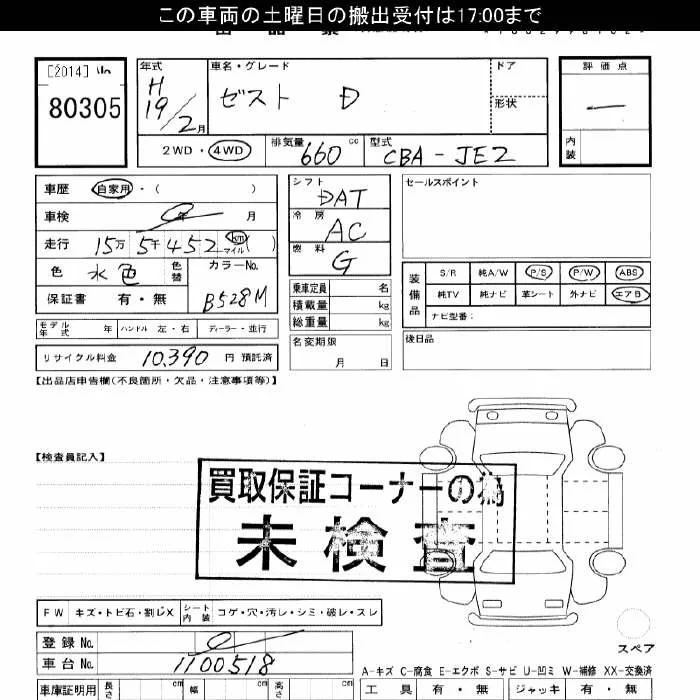 この車両の土曜日の搬出受付は17:00まで
[2014]
80305
年式
H
19/2月
車名・グレード
ゼスト D
ドア
形状
評価点
内装
2WD・4WD
排気量
660 cc
型式
CBA-JE2
車歴 自家用・( )
車検 0年 月
走行 15万5千452 km マイル( )
色 水色 色替
カラーNo.
B528M
保証書 有・無
シフト
DAT
冷房
AC
燃料
G
乗車定員 名
積載量 kg
総重量 kg
名変期限
月 日
セールスポイント
装備品
S/R 純A/W P/S P/W ABS
純TV 純ナビ 革シート 外ナビ エアB
ナビ型番:
後日品
モデル年式 年 ハンドル 左・右 ディーラー・並行
リサイクル料金 10,390 円 預託済
【出品店申告欄(不良箇所・欠品・注意事項等)】
【検査員記入】
買取保証コーナーの為
未検査
FW キズ・トビ石・割レX シート内装 コゲ・穴・汚レ・シミ・破レ・スレ
登録No. 0
車台No. 1100518
スペア
A-キズ C-腐食 E-エクボ S-サビ U-凹ミ W-補修 XX-交換済
車庫証明用 長さ cm 幅 cm 高さ cm
工具 有・無 ジャッキ 有・無